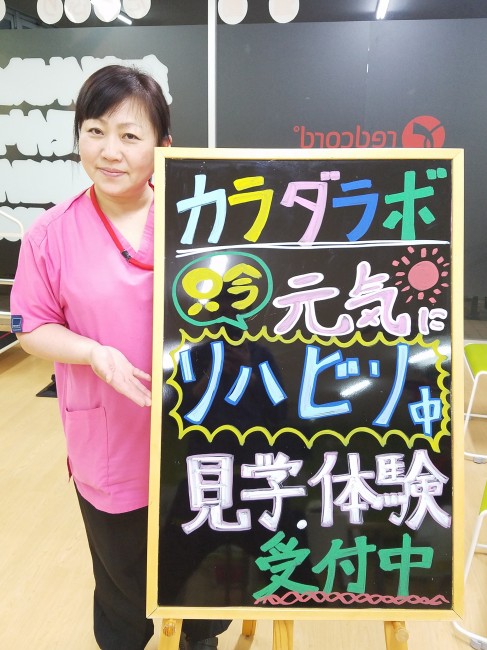 redcord®
カラダラボ
只今
元気に
リハビリ中
見学.体験
受付中